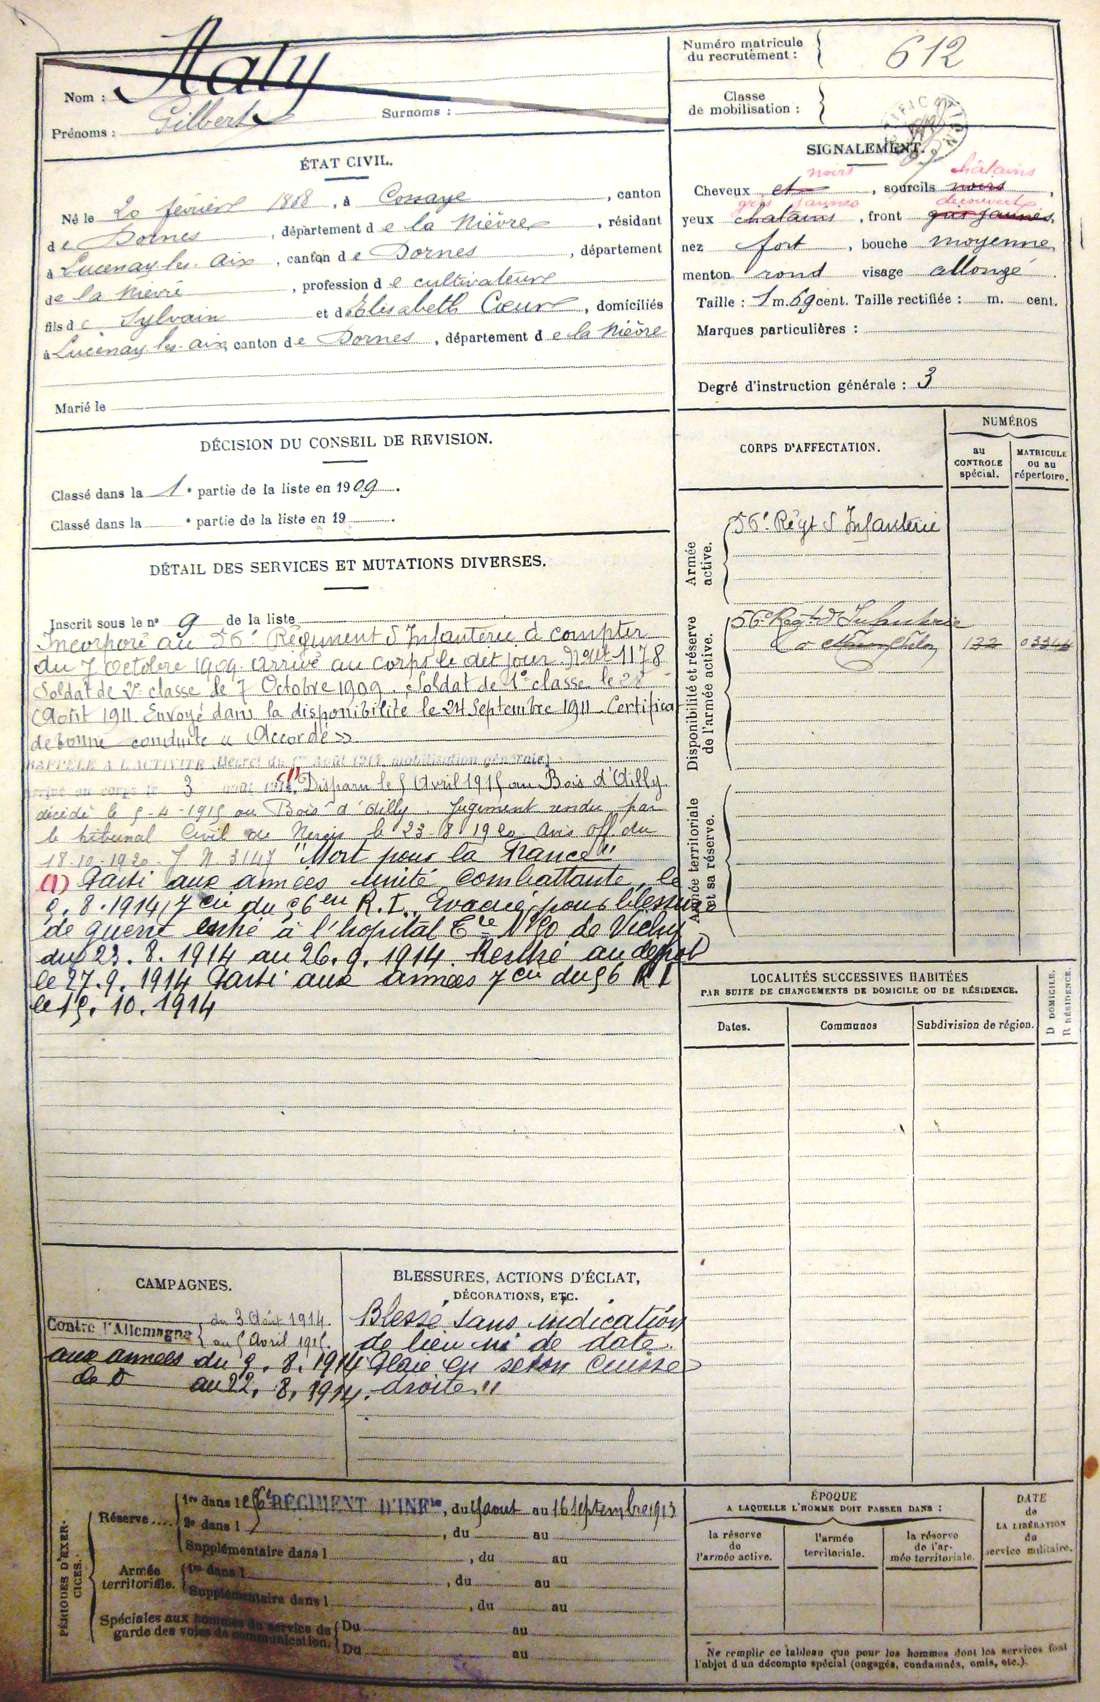 Nom : Staly
Prénoms : Gilbert Surnoms :
Numéro matricule du recrutement : 612
Classe de mobilisation :
ÉTAT CIVIL.
Né le 20 février 1888, à Cossaye, canton
de Dornes, département de la Nièvre, résidant
à Lucenay les Aix, canton de Dornes, département
de la Nièvre, profession de cultivateur
fils de Sylvain et d'Elisabeth Cœur, domiciliés
à Lucenay les aix canton de Dornes, département de la Nièvre
Marié le
SIGNALEMENT.
noirs châtains
Cheveux et, sourcils noirs,
gris jaunes découvert
yeux chatains, front gris jaunes,
nez fort, bouche moyenne
menton rond visage allongé
Taille : 1 m. 69 cent. Taille rectifiée : m. cent.
Marques particulières :
Degré d'instruction générale : 3
DÉCISION DU CONSEIL DE REVISION.
Classé dans la 1e partie de la liste en 1909.
Classé dans la e partie de la liste en 19 .
DÉTAIL DES SERVICES ET MUTATIONS DIVERSES.
Inscrit sous le n° 9 de la liste
Incorporé au 56e Régiment d'Infanterie à compter
du 7 Octobre 1909. Arrivé au corps le dit jour. 1178
Soldat de 2e classe le 7 Octobre 1909. Soldat de 1e classe le 28
Août 1911. Envoyé dans la disponibilité le 24 Septembre 1911. Certificat
de bonne conduite « Accordé »
RAPPELÉ A L'ACTIVITÉ (Décret du 1er Août 1914, mobilisation générale)
Arrivé au corps le 3 (1) Disparu le 5 Avril 1915 au Bois d'Ailly
décédé le 5-4-1915 au Bois d'Ailly. Jugement rendu par
le tribunal Civil de Nevers le 23-8-1920 Avis off. du
18-10-1920 J N 3147 "Mort pour la France"
(1) Parti aux armées Unité combattante le
9.8.1914, 7 cie du 56 en R.I. Evacué pour blessure
de guerre entré à l'hopital Cre N°20 de Vichy
du 23.8.1914 au 26.9.1914. Rentré au dépot
le 27.9.1914 Parti aux armées 7 cie du 56 R I
le 15.10.1914
CORPS D'AFFECTATION.
NUMÉROS
au CONTROLE spécial.
MATRICULE ou au répertoire.
Armée active.
56e Régt d'Infanterie
Disponibilité et réserve de l'armée active.
56e Régt d'Infanterie
132
Armée territoriale et sa réserve.
LOCALITÉS SUCCESSIVES HABITÉES
PAR SUITE DE CHANGEMENTS DE DOMICILE OU DE RÉSIDENCE.
Dates.
Communes
Subdivision de région.
D DOMICILE.
R RÉSIDENCE.
CAMPAGNES.
Contre l'Allemagne du 3 Août 1914
au 5 Avril 1915.
aux armées du 9.8.1914
au 22.8.1914.
BLESSURES, ACTIONS D'ÉCLAT,
DÉCORATIONS, ETC.
Blessé sans indication
de lieu ni de date
Plaie en seton cuisse
droite"
PÉRIODES D'EXERCICES.
Réserve....
1re dans le 56e RÉGIMENT D'INFie, du août au 16 septembre 1913
2e dans l , du au
Supplémentaire dans l , du au
Armée territoriale.
1re dans l , du au
Supplémentaire dans l , du au
Spéciales aux hommes du service de garde des voies de communication.
Du au
Du au
ÉPOQUE
A LAQUELLE L'HOMME DOIT PASSER DANS :
la réserve de l'armée active.
l'armée territoriale.
la réserve de l'armée territoriale.
DATE de LA LIBÉRATION du service militaire.
Ne remplir ce tableau que pour les hommes dont les services font
l'objet d'un décompte spécial (engagés, condamnés, omis, etc.).